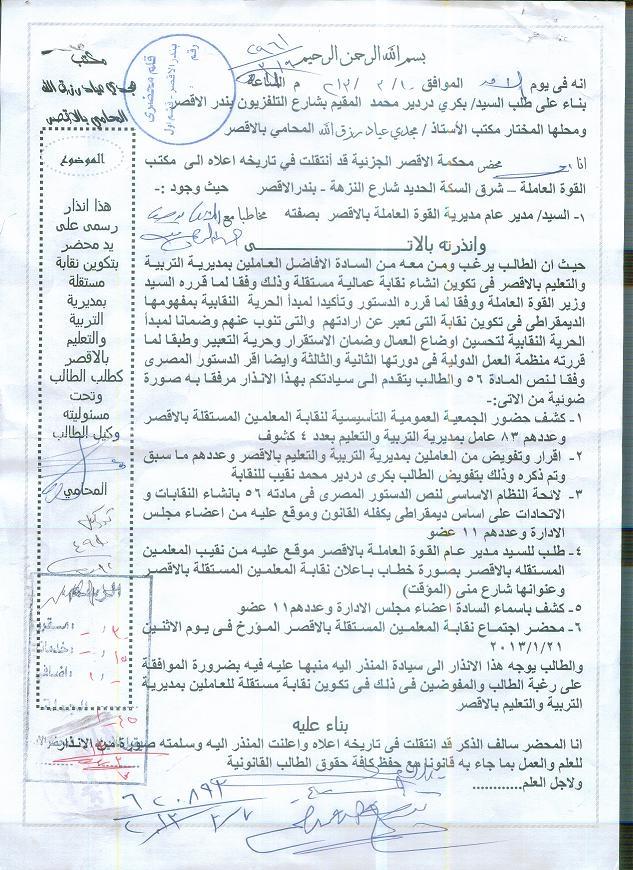 بسم الله الرحمن الرحيم
مكتب
مجدي عياد رزق الله
المحامي بالاقصر
قلم محضرى
بندر الاقصر - قسم اول
رقم
انه فى يوم الموافق ١٠ / ٢ / ٢٠١٣ م الساعة
بناء على طلب السيد/ بكري دردير محمد المقيم بشارع التلفزيون بندر الاقصر
ومحلها المختار مكتب الأستاذ / مجدي عياد رزق الله المحامي بالاقصر
انا محضر محكمة الاقصر الجزنية قد انتقلت في تاريخه اعلاه الى مكتب
القوة العاملة – شرق السكة الحديد شارع النزهة - بندر الاقصر حيث وجود :-
١- السيد/ مدير عام مديرية القوة العاملة بالاقصر بصفته مخاطبا مع
وانذرته بالاتـــــــى
حيث ان الطالب يرغب ومن معه من السادة الافاضل العاملين بمديرية التربية
والتعليم بالاقصر فى تكوين انشاء نقابة عمالية مستقلة وذلك وفقا لما قرره السيد
وزير القوة العاملة ووفقا لما قرره الدستور وتأكيدا لمبدأ الحرية النقابية بمفهومها
الديمقراطى فى تكوين نقابة التى تعبر عن ارادتهم والتى تنوب عنهم وضمانا لمبدأ
الحرية النقابية لتحسين اوضاع العمال وضمان الاستقرار وحرية التعبير وطبقا لما
قررته منظمة العمل الدولية فى دورتها الثانية والثالثة وايضا اقر الدستور المصرى
وفقا لنص المادة ٥٦ والطالب يتقدم الى سيادتكم بهذا الانذار مرفقا به صورة
ضونية من الاتى:-
١- كشف حضور الجمعية العمومية التأسيسية لنقابة المعلمين المستقلة بالاقصر
وعددهم ٨٣ عامل بمديرية التربية والتعليم بعدد ٤ كشوف
٢- اقرار وتفويض من العاملين بمديرية التربية والتعليم بالاقصر وعددهم ما سبق
وتم ذكره وذلك بتفويض الطالب بكرى دردير محمد نقيب للنقابة
٣- لائحة النظام الاساسى لنص الدستور المصرى فى مادته ٥٦ بانشاء النقابات و
الاتحادات على اساس ديمقراطى يكفله القانون وموقع عليه من اعضاء مجلس
الادارة وعددهم ١١ عضو
٤- طلب للسيد مدير عام القوة العاملة بالاقصر موقع عليه من نقيب المعلمين
المستقله بالاقصر بصورة خطاب باعلان نقابة المعلمين المستقلة بالاقصر
وعنوانها شارع منى (المؤقت)
٥- كشف باسماء السادة اعضاء مجلس الادارة وعددهم ١١ عضو
٦- محضر اجتماع نقابة المعلمين المستقلة بالاقصر المؤرخ فى يوم الاثنين
٢٠١٣/١/٢١
والطالب يوجه هذا الانذار الى سيادة المنذر اليه منبها عليه فيه بضرورة الموافقة
على رغبة الطالب والمفوضين فى ذلك فى تكوين نقابة مستقلة للعاملين بمديرية
التربية والتعليم بالاقصر
بناء عليه
انا المحضر سالف الذكر قد انتقلت فى تاريخه اعلاه واعلنت المنذر اليه وسلمته صورة من الانذار
للعلم والعمل بما جاء به قانونا مع حفظ كافة حقوق الطالب القانونية
ولاجل العلم.............
الموضوع
هذا انذار
رسمى على
يد محضر
بتكوين نقابة
مستقلة
بمديرية
التربية
والتعليم
بالاقصر
كطلب الطالب
وتحت
مسئوليته
وكيل الطالب
المحامي